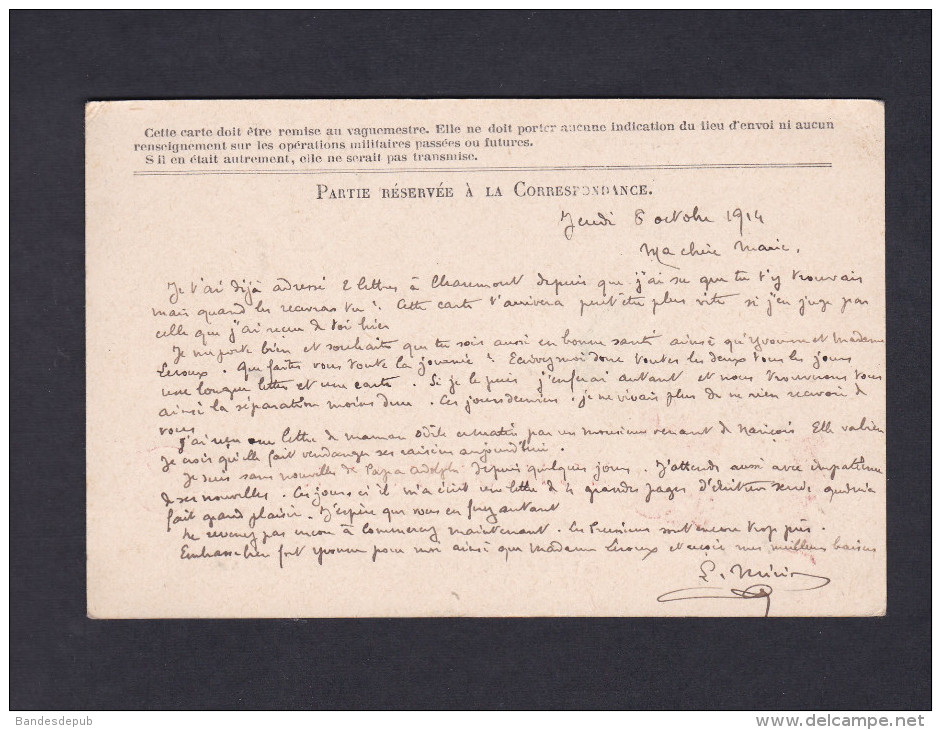 Cette carte doit être remise au vaguemestre. Elle ne doit porter aucune indication du lieu d'envoi ni aucun
renseignement sur les opérations militaires passées ou futures.
S'il en était autrement, elle ne serait pas transmise.
PARTIE RÉSERVÉE À LA CORRESPONDANCE.
Jeudi 8 octobre 1914
Ma chère Marie,
Je t'ai déjà adressé 2 lettres à Charemont depuis que j'ai su que tu t'y trouvais
mais quand les recevras tu ? Cette carte t'arrivera peut être plus vite si j'en juge par
celle que j'ai reçue de toi hier
Je me porte bien et souhaite que tu sois aussi en bonne santé ainsi qu'Yvonne et Madame
Leroux. Que faites vous toute la journée ? Ecrivez moi donc toutes les deux tous les jours
une longue lettre et une carte. Si je le puis j'en ferai autant et nous trouverons tous
ainsi la séparation moins dure. Ces jours derniers, je ne vivais plus de ne rien recevoir de
vous
J'ai reçu une lettre de maman Odile ce matin par un monsieur venant de Elle va bien
Je crois qu'elle fait vendanger ses raisins aujourd'hui.
Je suis sans nouvelles de Papa Adolphe depuis quelques jours. J'attends aussi avec impatience
de ses nouvelles. Ces jours ci il m'a écrit une lettre de 4 grandes pages d'écriture serrée qui m'a
fait grand plaisir. J'espère que vous en ferez autant
Ne revenez pas encore à Commercy maintenant. Les Prussiens sont encore trop près.
Embrasse bien fort Yvonne pour moi ainsi que Madame Leroux et reçois mes meilleurs baisers
Bandesdepub
www.delcampe.net